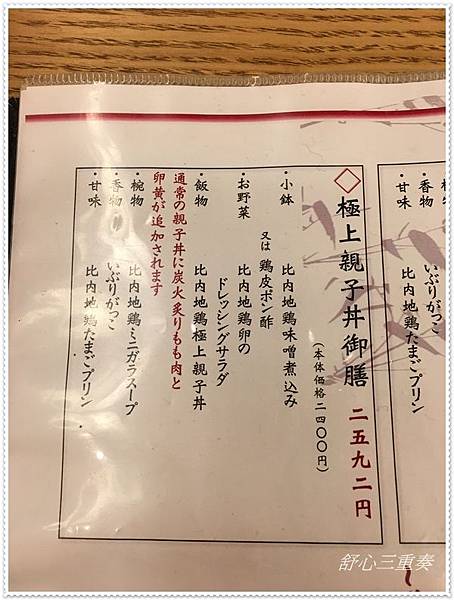 ・香物　いぶりがっこ
・甘味　比内地鶏たまごプリン
◇極上親子丼御膳　二五九二円
（本体価格二四〇〇円）
・小鉢　比内地鶏味噌煮込み
又は　鶏皮ポン酢
・お野菜　比内地鶏卵の
ドレッシングサラダ
・飯物　比内地鶏極上親子丼
通常の親子丼に炭火炙りもも肉と
卵黄が追加されます
・椀物　比内地鶏ミニガラスープ
・香物　いぶりがっこ
・甘味　比内地鶏たまごプリン
舒心三重奏